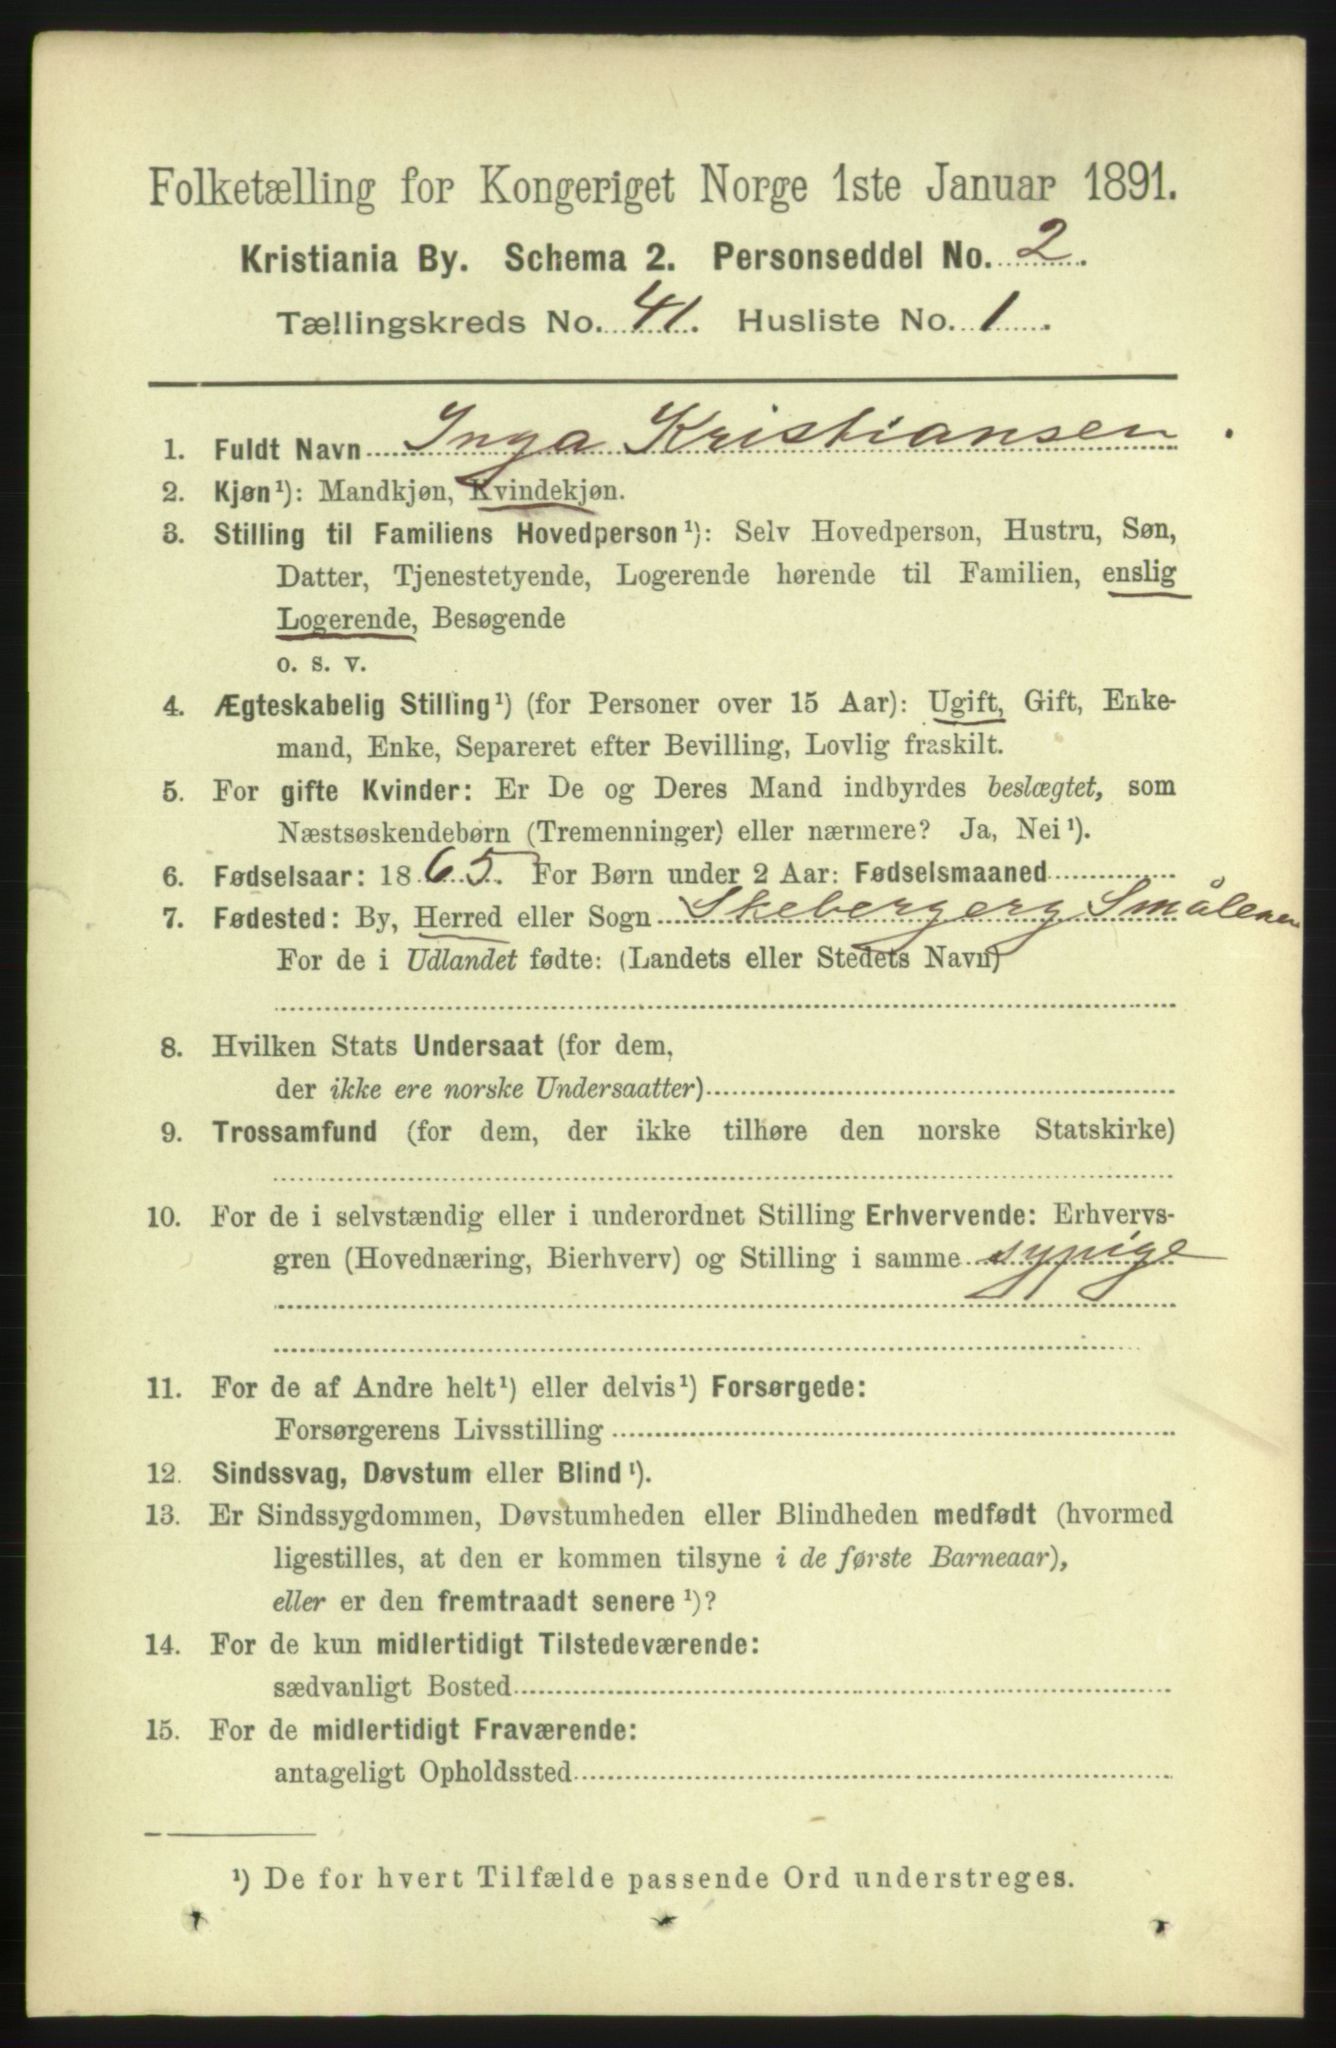 Folketælling for Kongeriget Norge 1ste Januar 1891.
Kristiania By. Schema 2. Personseddel No. 2.
Tællingskreds No. 41. Husliste No. 1.
1. Fuldt Navn Inga Kristiansen.
2. Kjøn¹): Mandkjøn, Kvindekjøn.
3. Stilling til Familiens Hovedperson¹): Selv Hovedperson, Hustru, Søn,
Datter, Tjenestetyende, Logerende hørende til Familien, enslig
Logerende, Besøgende
o. s. v.
4. Ægteskabelig Stilling¹) (for Personer over 15 Aar): Ugift, Gift, Enke-
mand, Enke, Separeret efter Bevilling, Lovlig fraskilt.
5. For gifte Kvinder: Er De og Deres Mand indbyrdes beslægtet, som
Næstsøskendebørn (Tremenninger) eller nærmere? Ja, Nei¹).
6. Fødselsaar: 1865. For Børn under 2 Aar: Fødselsmaaned
7. Fødested: By, Herred eller Sogn Skebergerg Smålenen
For de i Udlandet fødte: (Landets eller Stedets Navn)
8. Hvilken Stats Undersaat (for dem,
der ikke ere norske Undersaatter)
9. Trossamfund (for dem, der ikke tilhøre den norske Statskirke)
10. For de i selvstændig eller i underordnet Stilling Erhvervende: Erhvervs-
gren (Hovednæring, Bierhverv) og Stilling i samme sypige
11. For de af Andre helt¹) eller delvis¹) Forsørgede:
Forsørgerens Livsstilling
12. Sindssvag, Døvstum eller Blind¹).
13. Er Sindssygdommen, Døvstumheden eller Blindheden medfødt (hvormed
ligestilles, at den er kommen tilsyne i de første Barneaar),
eller er den fremtraadt senere¹)?
14. For de kun midlertidigt Tilstedeværende:
sædvanligt Bosted
15. For de midlertidigt Fraværende:
antageligt Opholdssted
¹) De for hvert Tilfælde passende Ord understreges.